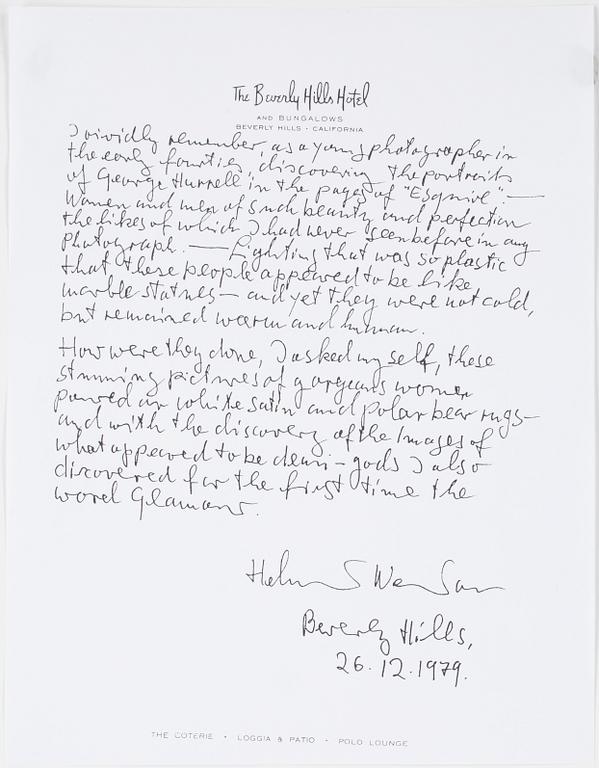 The Beverly Hills Hotel
AND BUNGALOWS
BEVERLY HILLS · CALIFORNIA
I vividly remember, as a young photographer in
the early fourties, discovering the portraits
of George Hurrell in the pages of "Esquire" —
Women and men of such beauty and perfection
the likes of which I had never seen before in any
Photograph. — Lighting that was so plastic
that these people appeared to be like
marble statues — and yet they were not cold,
but remained warm and human.
How were they done, I asked my self, these
stunning pictures of gorgeous women
poured on white satin and polar bear rugs —
and with the discovery of the Images of
what appeared to be demi-gods I also
discovered for the first time the
word Glamour.
Beverly Hills,
26.12.1979.
THE COTERIE · LOGGIA & PATIO · POLO LOUNGE